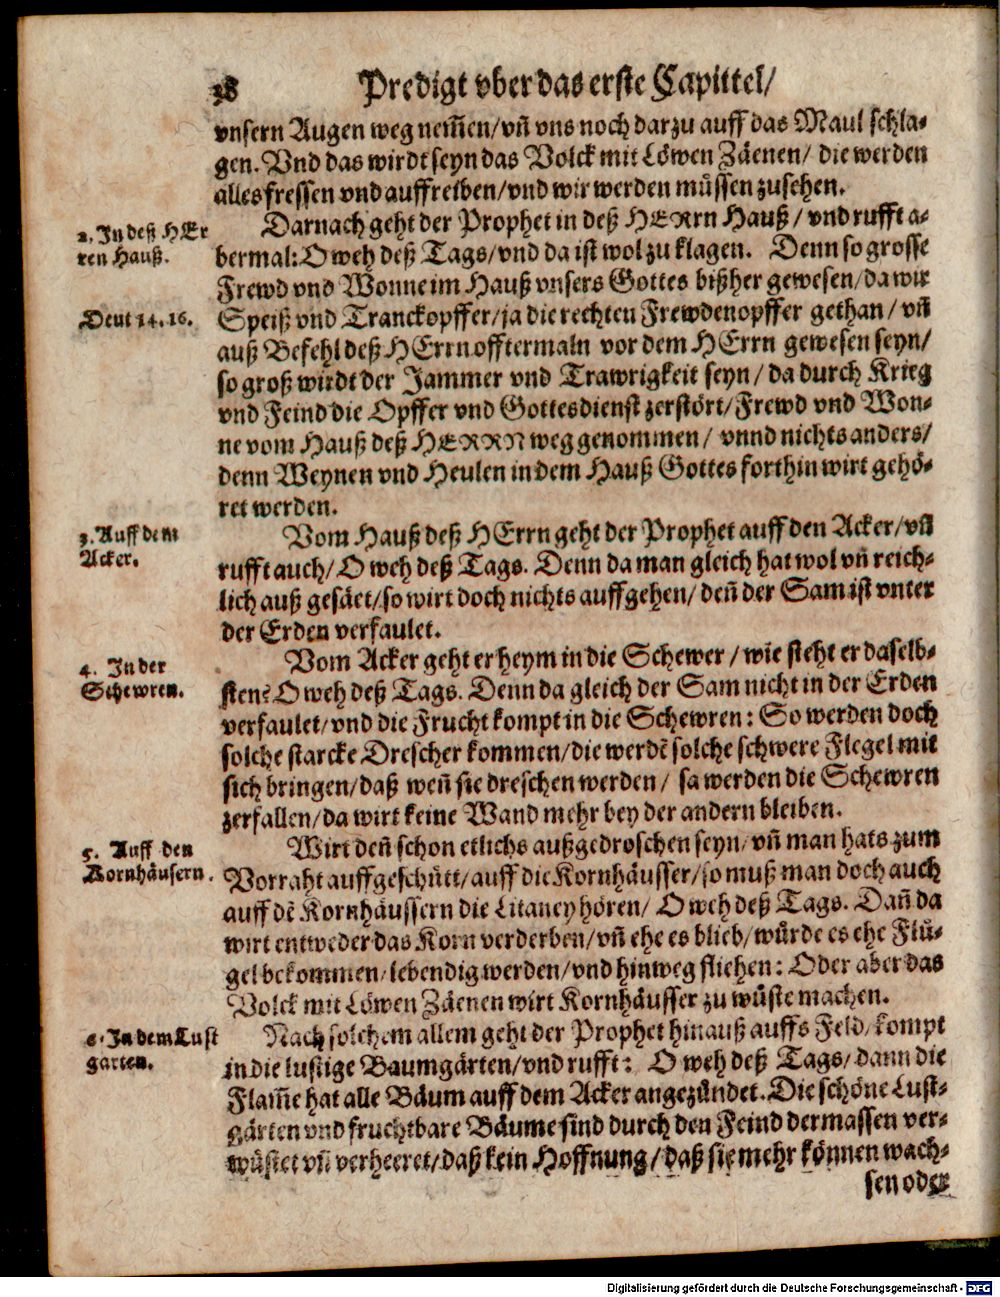 38 Predigt vber das erste Capittel/
vnsern Augen weg nem̃en/vñ vns noch darzu auff das Maul schla-
gen. Vnd das wirdt seyn das Volck mit Löwen Zäenen/ die werden
alles fressen vnd auffreiben/vnd wir werden müssen zusehen.
2. In deß HEr
ren Hauß.
Darnach geht der Prophet in deß HERrn Hauß / vnd rufft a-
bermal: O weh deß Tags/vnd da ist wol zu klagen. Denn so grosse
Frewd vnd Wonne im Hauß vnsers Gottes bißher gewesen/da wir
Deut 14.16.
Speiß vnd Tranckopffer/ja die rechten Frewdenopffer gethan / vñ
auß Befehl deß HErrn offtermaln vor dem HErrn gewesen seyn/
so groß wirdt der Jammer vnd Trawrigkeit seyn / da durch Krieg
vnd Feind die Opffer vnd Gottesdienst zerstört/Frewd vnd Won-
ne vom Hauß deß HERRN weg genommen / vnnd nichts anders/
denn Weynen vnd Heulen in dem Hauß Gottes forthin wirt gehö-
ret werden.
3. Auff dem
Acker.
Vom Hauß deß HErrn geht der Prophet auff den Acker/vñ
rufft auch/ O weh deß Tags. Denn da man gleich hat wol vñ reich-
lich auß gesäet/so wirt doch nichts auffgehen/ deñ der Sam ist vnter
der Erden verfaulet.
4. In der
Schewren.
Vom Acker geht er heym in die Schewer / wie steht er daselb-
sten? O weh deß Tags. Denn da gleich der Sam nicht in der Erden
verfaulet/vnd die Frucht kompt in die Schewren: So werden doch
solche starcke Drescher kommen/die werdē solche schwere Flegel mit
sich bringen/daß weñ sie dreschen werden / sa werden die Schewren
zerfallen/da wirt keine Wand mehr bey der andern bleiben.
5. Auff den
Kornhäusern.
Wirt deñ schon etlichs außgedroschen seyn/vñ man hats zum
Vorraht auffgeschütt/auff die Kornhäusser/so muß man doch auch
auff dē Kornhäussern die Litaney hören/ O weh deß Tags. Dañ da
wirt entweder das Korn verderben/vñ ehe es blieb/würde es ehe Flü-
gel bekommen/lebendig werden/vnd hinweg fliehen: Oder aber das
Volck mit Löwen Zäenen wirt Kornhäusser zu wüste machen.
6. In dem Lust
garten.
Nach solchem allem geht der Prophet hinauß auffs Feld/kompt
in die lustige Baumgärten/vnd rufft: O weh deß Tags/dann die
Flam̃e hat alle Bäum auff dem Acker angezündet. Die schöne Lust-
gärten vnd fruchtbare Bäume sind durch den Feind dermassen ver-
wüstet vñ verheeret/daß kein Hoffnung/daß sie mehr können wach-
sen oder
Digitalisierung gefördert durch die Deutsche Forschungsgemeinschaft - DFG